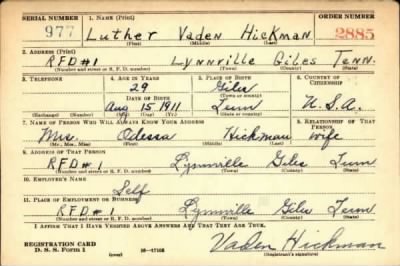 SERIAL NUMBER 1. NAME (Print) ORDER NUMBER
977 Luther Vaden Hickman 2885
(First) (Middle) (Last)
2. ADDRESS (Print)
RFD#1 Lynnville Giles Tenn.
(Number and street or R. F. D. number) (Town) (County) (State)
3. TELEPHONE 4. AGE IN YEARS 5. PLACE OF BIRTH 6. COUNTRY OF CITIZENSHIP
29 Giles
(Town or county)
DATE OF BIRTH
Aug 15 1911 Tenn U.S.A.
(Exchange) (Number) (Mo.) (Day) (Yr.) (State or country)
7. NAME OF PERSON WHO WILL ALWAYS KNOW YOUR ADDRESS 8. RELATIONSHIP OF THAT PERSON
Mrs. Odessa Hickman wife
(Mr., Mrs., Miss) (First) (Middle) (Last)
9. ADDRESS OF THAT PERSON
RFD#1 Lynnville Giles Tenn
(Number and street or R. F. D. number) (Town) (County) (State)
10. EMPLOYER'S NAME
Self
11. PLACE OF EMPLOYMENT OR BUSINESS
RFD#1 Lynnville Giles Tenn
(Number and street or R. F. D. number) (Town) (County) (State)
I AFFIRM THAT I HAVE VERIFIED ABOVE ANSWERS AND THAT THEY ARE TRUE.
REGISTRATION CARD
D. S. S. Form 1 (over) Vaden Hickman
(Registrant's signature)